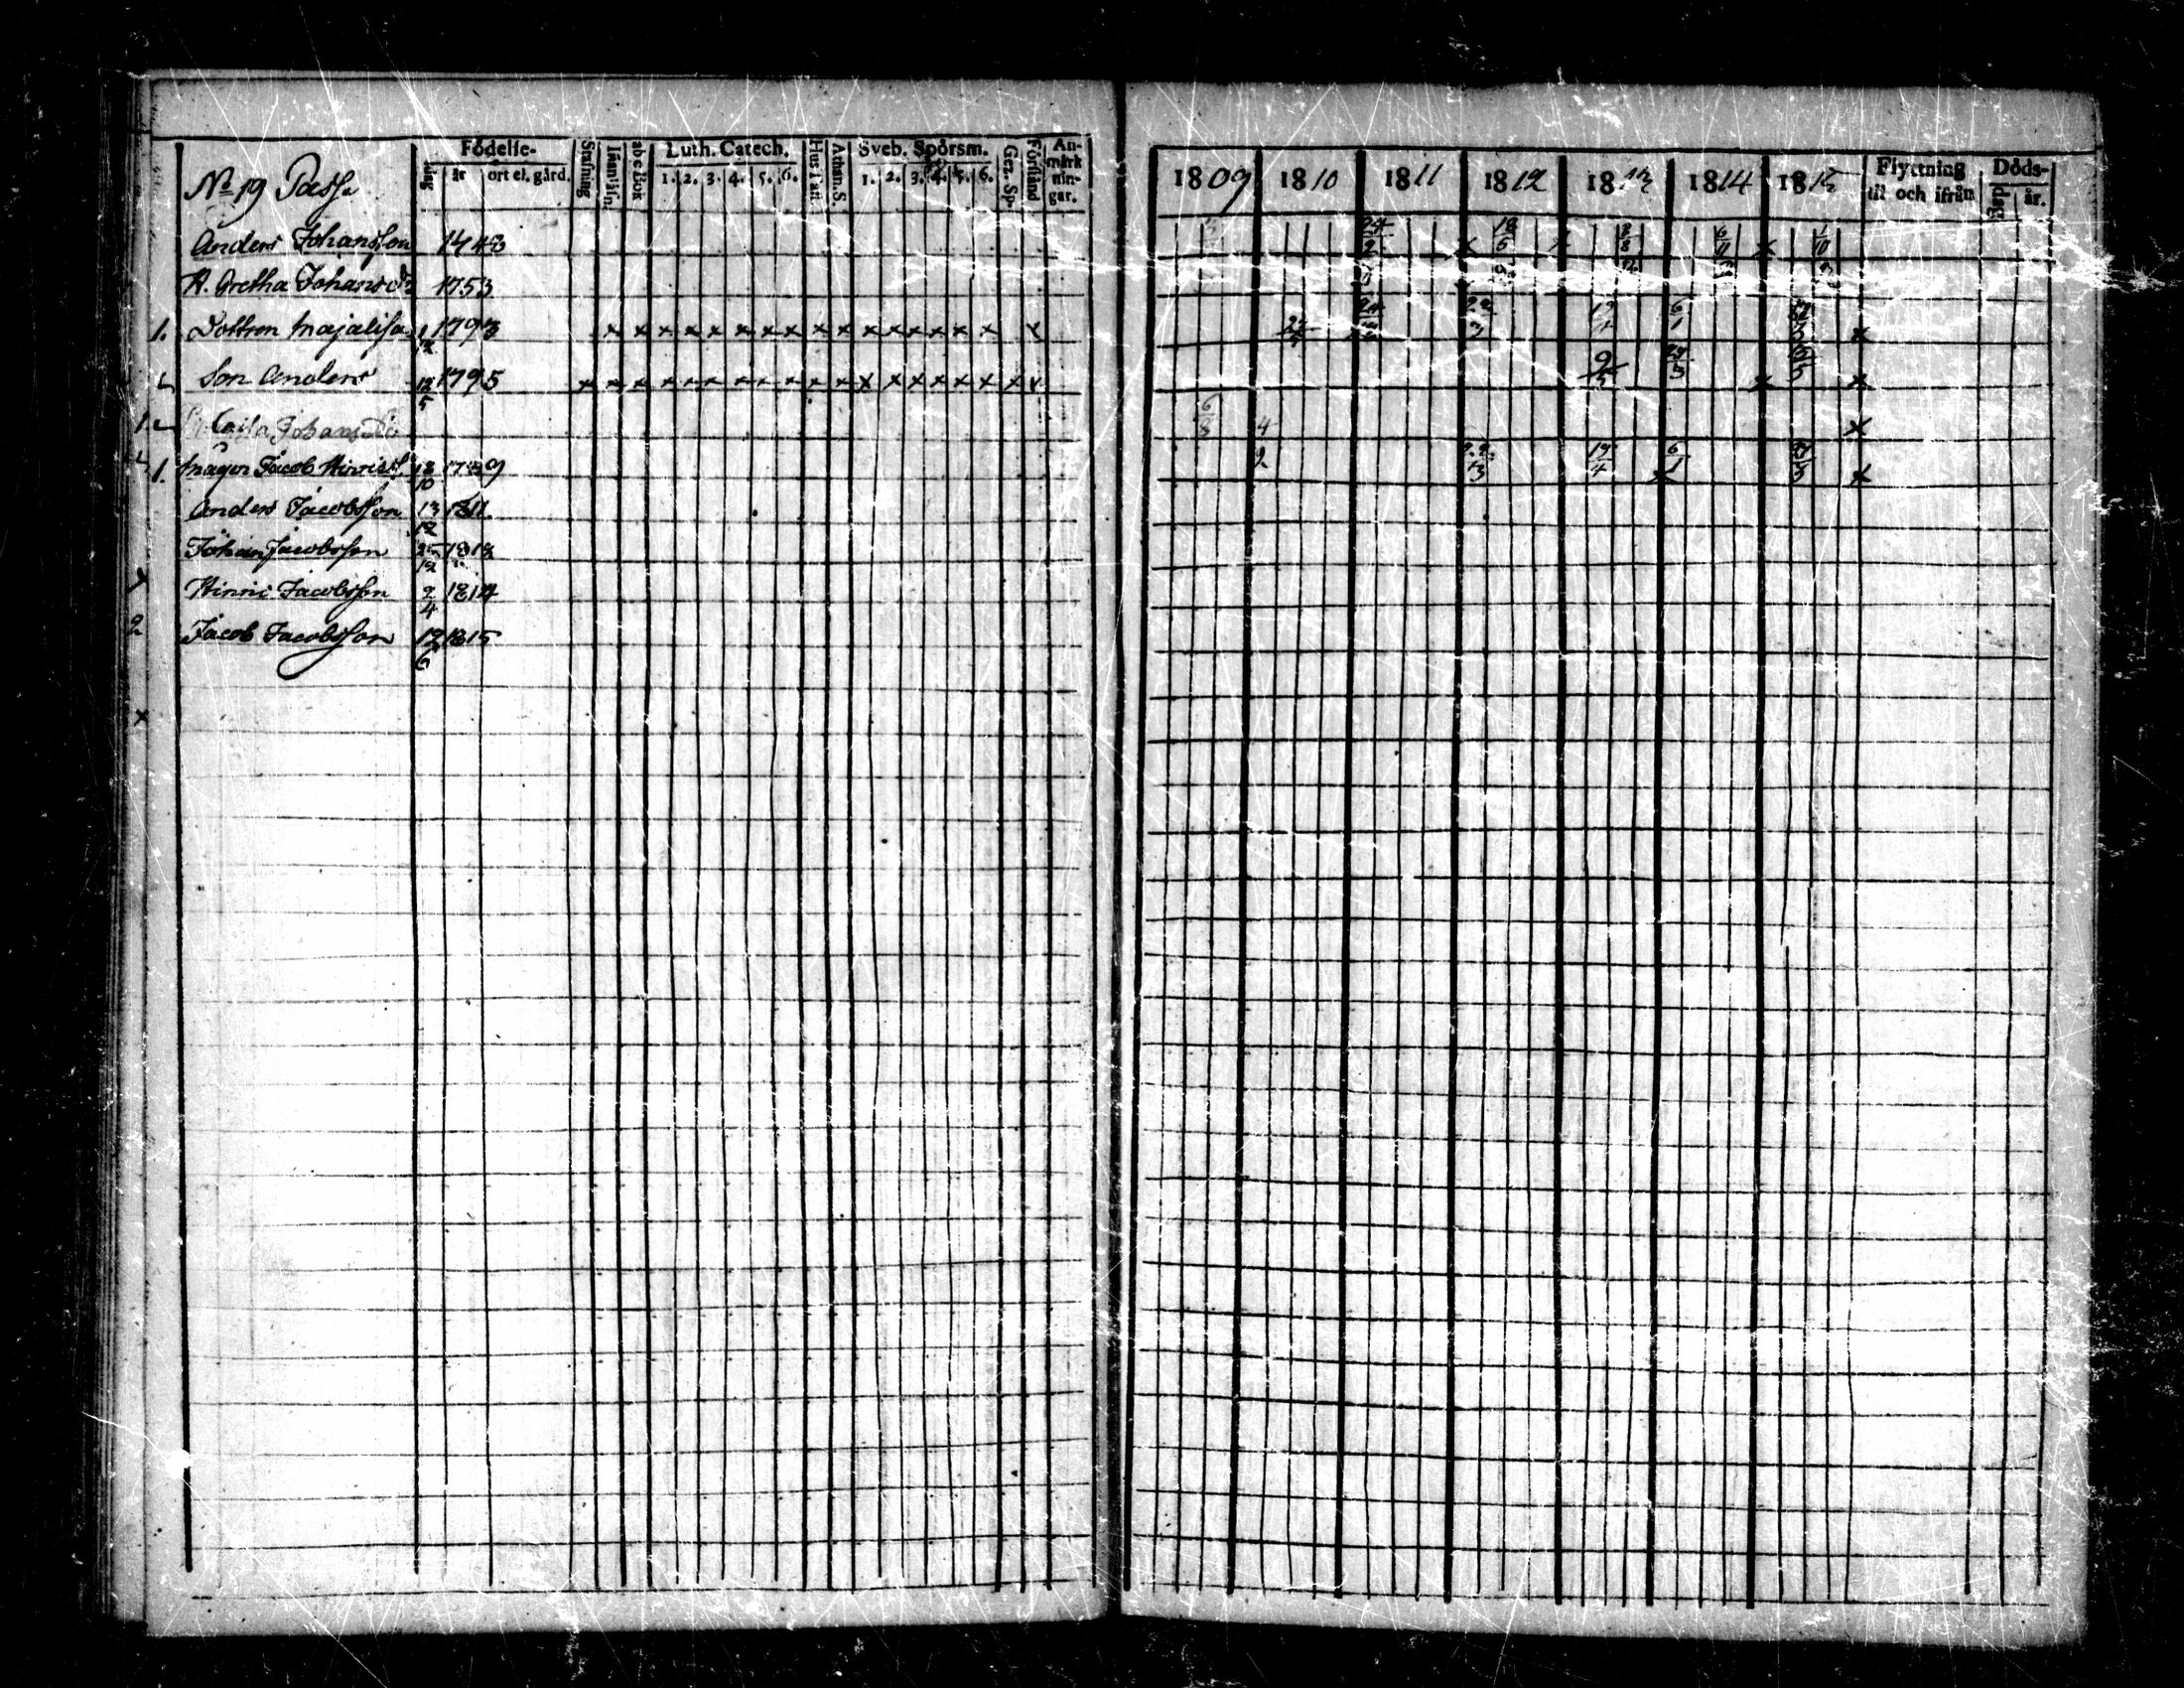 No 19 Passe
Födelse-
dag
år
ort el. gård.
Stafning
Innanläsn.
abc Bok
Luth. Catech.
1. 2. 3. 4. 5. 6.
Hus Tafl.
Athan. S.
Sveb. Spörsm.
1. 2. 3. 4. 5. 6.
Gez. Sp.
Förstånd
An-
märk
nin-
gar.
1809 1810 1811 1812 1813 1814 1815
Flyttning
til och ifrån
Döds-
dag år.
Anders Johansson 1748 24/2 x 18/5 x 8/8 6/11 x 1/10
H. Gretha Johansdr 1753
1. Dottren Majalisa 1/12 1793 x x x x x x x x x x x x x x x x x 22/3 6/1 x
Son Anders 12/5 1795 x x x x x x x x x x x x x x x x x x x 29/3 x x
Johansdr 6/8 4 x
1. Mågen Jacob Hinriss. 18/10 9 22/3 19/4 6/1 x 21/5 x
Anders Jacobsson 13/12 1811
Johan Jacobsson 25/12 1812
x Hinric Jacobsson 2/4 1814
2 Jacob Jacobsson 12/6 1815
x